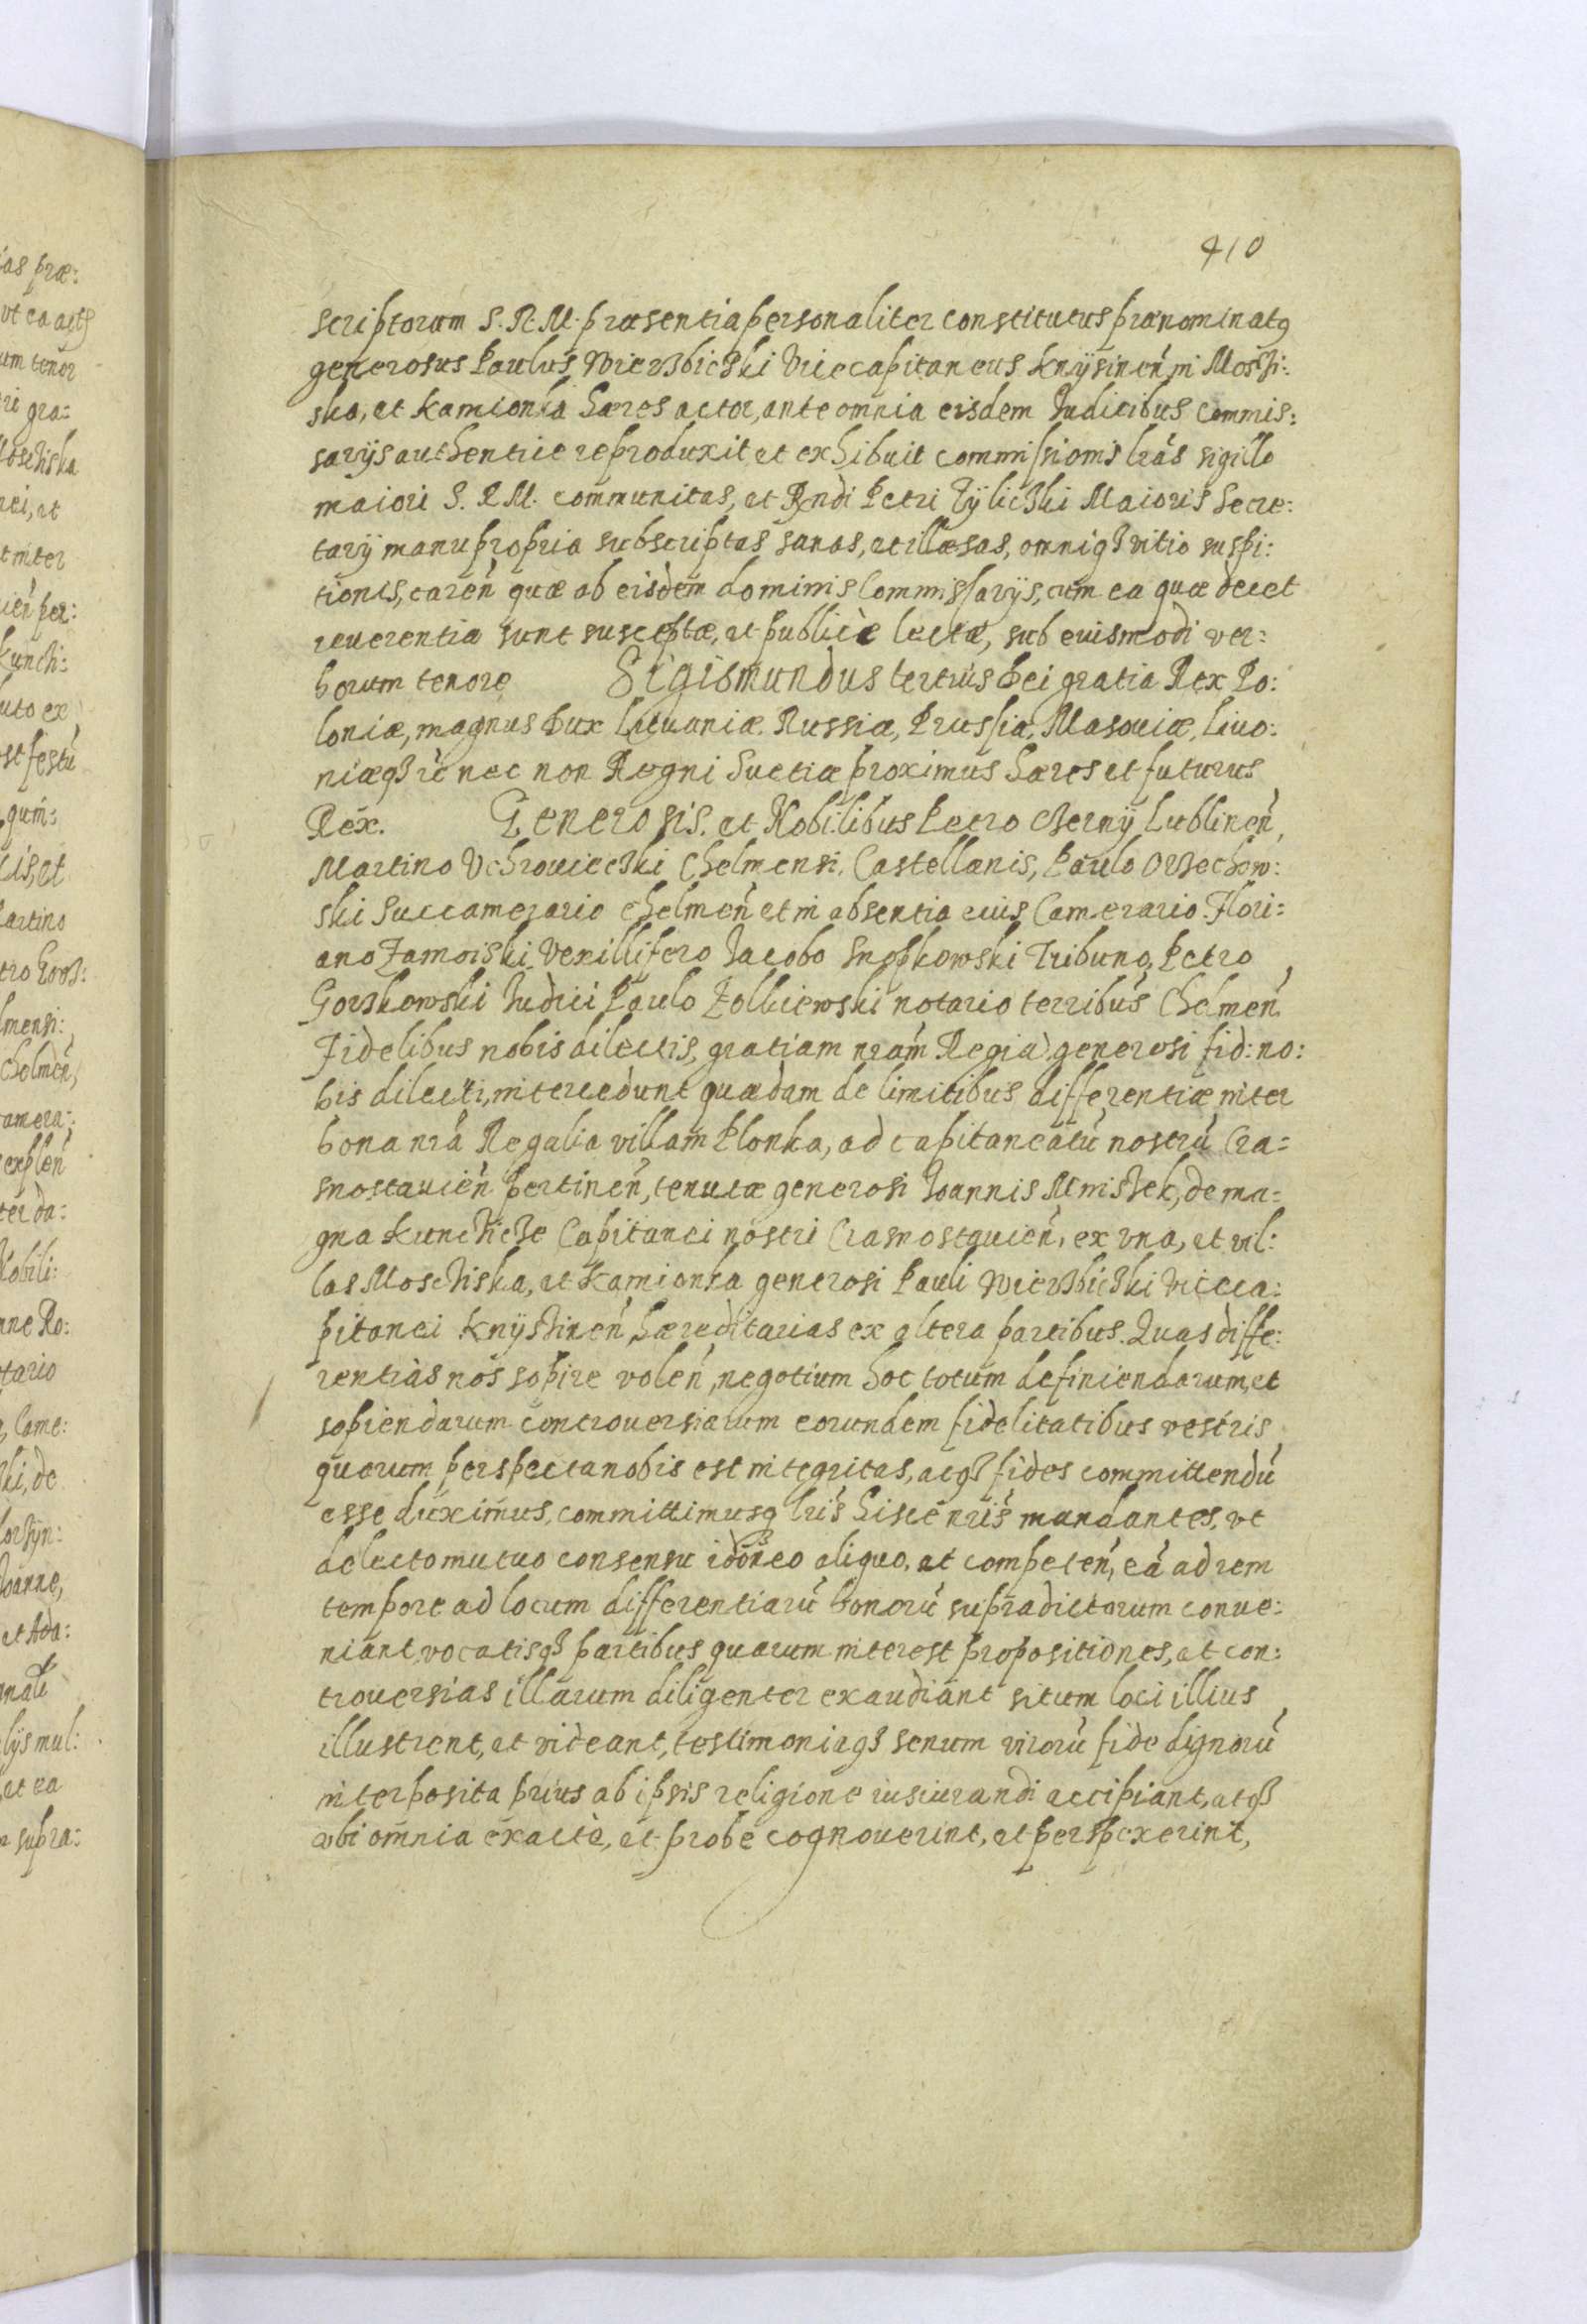 410
scriptorum S. R. M. præsentia personaliter constitutus prænominatq
generosus Paulus Wierzbiczki Vicecapitaneus Knÿsinen̄ in Mosczi:
ska, et Kamionka hæres actor, ante omnia eisdem Iudicibus Commis:
sarÿs authentice reproduxit et exhibuit commissionis lrās sigillo
maiori S. R M. communitas, et Rndi Petri Tÿliczki Maioris Secre:
tarÿ manu propria subscriptas sanas, et illæsas, omniqꝫ vitio suspi:
tionis, caren̄ quæ ab eisdem dominis Commissarÿs, cum ea quæ decet
reuerentia sunt susceptæ, et publicè lectæ, sub euismodi ver:
borum tenore Sigismundus tertius Dei gratia Rex Po:
loniæ, magnus Dux Lituaniæ. Russiæ, Prussiæ, Masouiæ, Liuo:
niæqꝫ rc̄ nec non Regni Suetiæ proximus hæres et futurus
Rex. Generosis. et Nobilibus Petro Czernÿ Lublinen̄,
Martino Vchrowieczki Chelmensi, Castellanis, Paulo Orzechow:
ski Succamerario Chelmen̄ et in absentia euis Camerario Flori:
ano Zamoiski Vexillifero Iacobo Snopkowski Tribuno, Petro
Gorzkowski Iudici Paulo Zolkiewski notario terribus Chelmen̄
Fidelibus nobis dilectis, gratiam nrām Regiā. generosi fid: no:
bis dilecti, intercedunt quædam de limitibus differentiæ inter
bona nrā Regalia villam Plonka, ad capitaneatū nostrū Cra=
snostauien̄ pertinen̄, tenutæ generosi Ioannis Mniszek, de ma=
gna Kunczicze Capitanei nostri Crasnostauien̄, ex vna, et vil:
las Mosciska, et Kamionka generosi Pauli Wierzbiczki Vicecа:
pitanei Knÿszinen̄ hæreditarias ex altera partibus. Quas diffe:
rentias nos sopire volen̄, negotium hoc totum definiendarum, et
sopiendarum controuersiarum eorundem fidelitatibus vestris
quorum perspecta nobis est integritas, acqꝫ fides committendū
esse duximus, committimusq lris hisce nris mandantes, vt
delecto mutuo consensu idoneo aliquo, et competen̄, eā ad rem
tempore ad locum differentiarū bonorū supradictorum conue:
niant, vocatisqꝫ partibus quarum interest propositiones, et con:
trouersias illarum diligenter exaudiant situm loci illius
illustrent, et videant, testimoniaqꝫ senum virorū fide dignorū
interposita prius ab ipsis religione iusiurandi accipiant, atqꝫ
vbi omnia exactè, et probè cognouerint, et perspexerint,